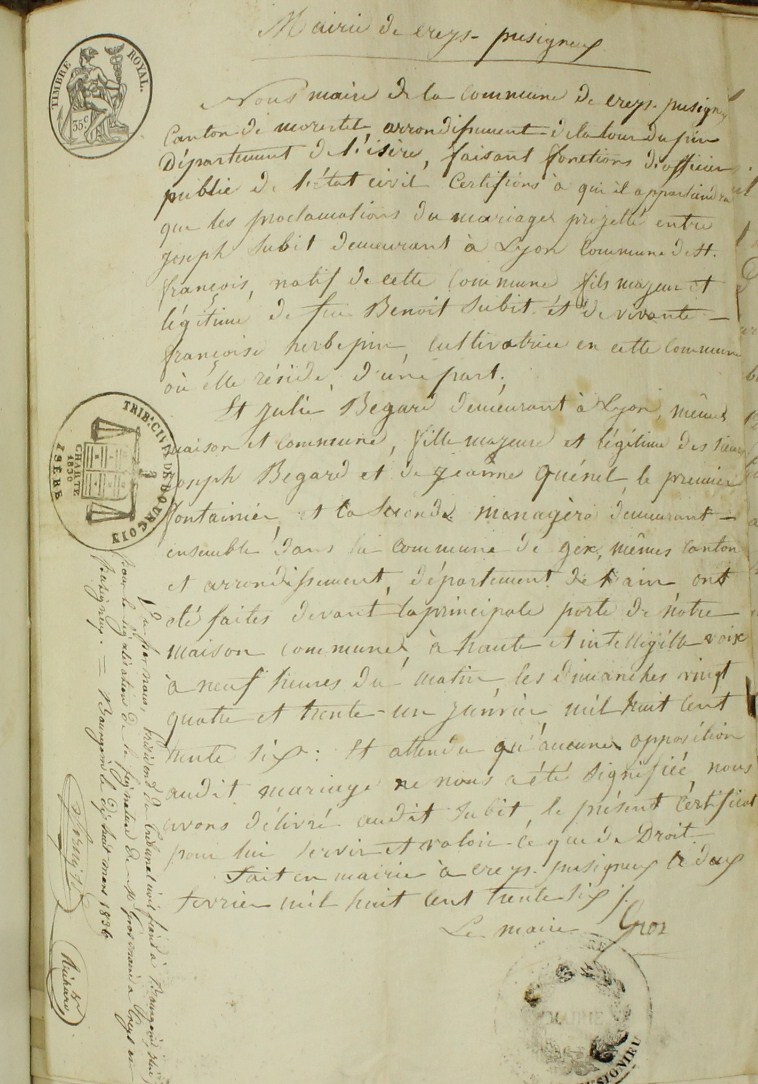 Mairie de creys-pusigneux
TIMBRE ROYAL.
35c
Nous maire de la commune de creys-pusigneux
Canton de morestel arrondissement de la tour du pin
Département de l'isère, faisant fonctions d'officier
public de l'état civil Certifions à qui il appartiendra
que les proclamations du mariage projetté entre
joseph Subit demeurant à Lyon commune de St.
françois, natif de cette commune fils majeur et
légitime de feu Benoit Subit et de vivante
françoise herbepin, cultivatrice en cette commune
où elle réside, d'une part,
Et Julie Begard demeurant à Lyon, mêmes
maison et commune, fille majeure et légitime des sieur
joseph Begard et de jeanne quénet, le premier
fontainier, et la Seconde menagère demeurant
ensemble dans la commune de gex, mêmes canton
et arrondissement, département de l'ain ont
été faites devant la principale porte de notre
maison commune, à haute et intelligible voix
à neuf heures du matin les dimanches vingt
quatre et trente-un janvier mil huit cent
trente six: Et attendu qu'aucune opposition
audit mariage ne nous a été signifiée, nous
avons délivré audit Subit le présent certificat
pour lui servir et valoir ce que de Droit
fait en mairie à creys-pusigneux le deux
fevrier mil huit cent trente six
Le maire Gros
TRIB. CIVIL DE BOURGOIN
ISÈRE
CHARTE
1830
Vu par nous, Président du tribunal civil séant à Bourgoin,
pour la légalisation de la signature de M. Gros maire à Creys et
Pusigneux. — Bourgoin le dix huit mars 1836
MAIRIE